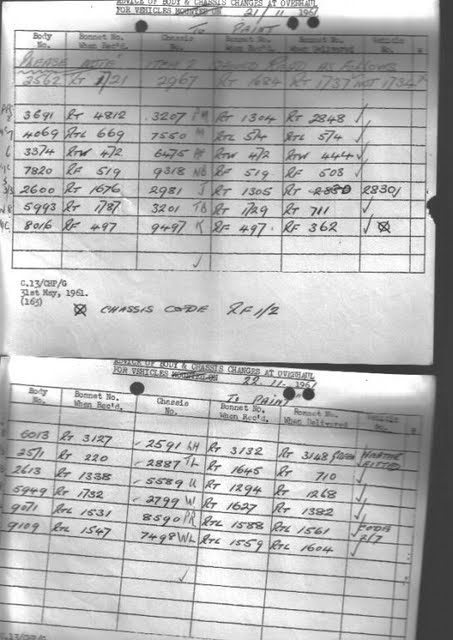 ADVICE OF BODY & CHASSIS CHANGES AT OVERHAUL
FOR VEHICLES 21/11 1961
To PAINT
Body No. Bonnet No. When Rec'd. Chassis No. Bonnet No. Bonnet No. When Delivered Vehicle No.
PLEASE NOTE ITEM 2 SHOULD READ AS FOLLOWS
2562 RT 1/21 2967 RT 1684 RT 1737 NOT 1734
3691 RT 4812 3207 RT 1304 RT 2848 ✓
4069 RTL 669 7550 RTL 574 RTL 574 ✓
3374 RTW 472 6475 RTW 472 RTW 444 ✓
7820 RF 519 9318 NB RF 519 RF 503 ✓
2600 RT 1676 2981 J RT 1305 RT 2830 2830)
5993 RT 1787 3201 TB RT 1729 RT 711 ✓
8016 RF 497 9497 K RF 497 RF 362 ✓ ☒
C.13/CHP/G
31st May, 1961.
(163)
☒ CHASSIS CODE RF 1/2
ADVICE OF BODY & CHASSIS CHANGES AT OVERHAUL
FOR VEHICLES 22.11. 1961
To PAINT
Body No. Bonnet No. When Rec'd. Chassis No. Bonnet No. Bonnet No. When Delivered Vehicle No.
6013 RT 3127 2591 LH RT 3132 RT 3148 GREEN HEATER FITTED
2571 RT 220 2887 TL RT 1645 RT 710 ✓
2613 RT 1338 5589 U RT 1294 RT 1268 ✓
5949 RT 1732 2799 W RT 1627 RT 1382 ✓
9071 RTL 1531 8590 PR RTL 1588 RTL 1561 ✓
9109 RTL 1547 7498 WL RTL 1559 RTL 1604 ✓ 2/7
C.13/CHP/G